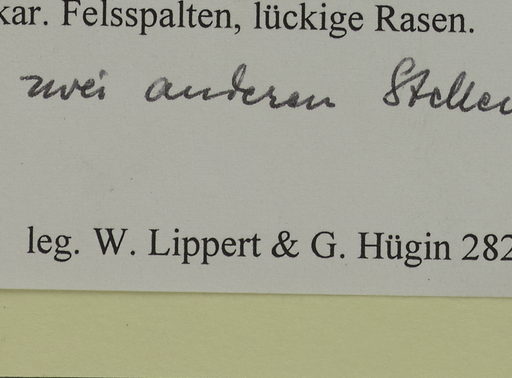 kar. Felsspalten, lückige Rasen.
zwei anderen Stellen
leg. W. Lippert & G. Hügin 282